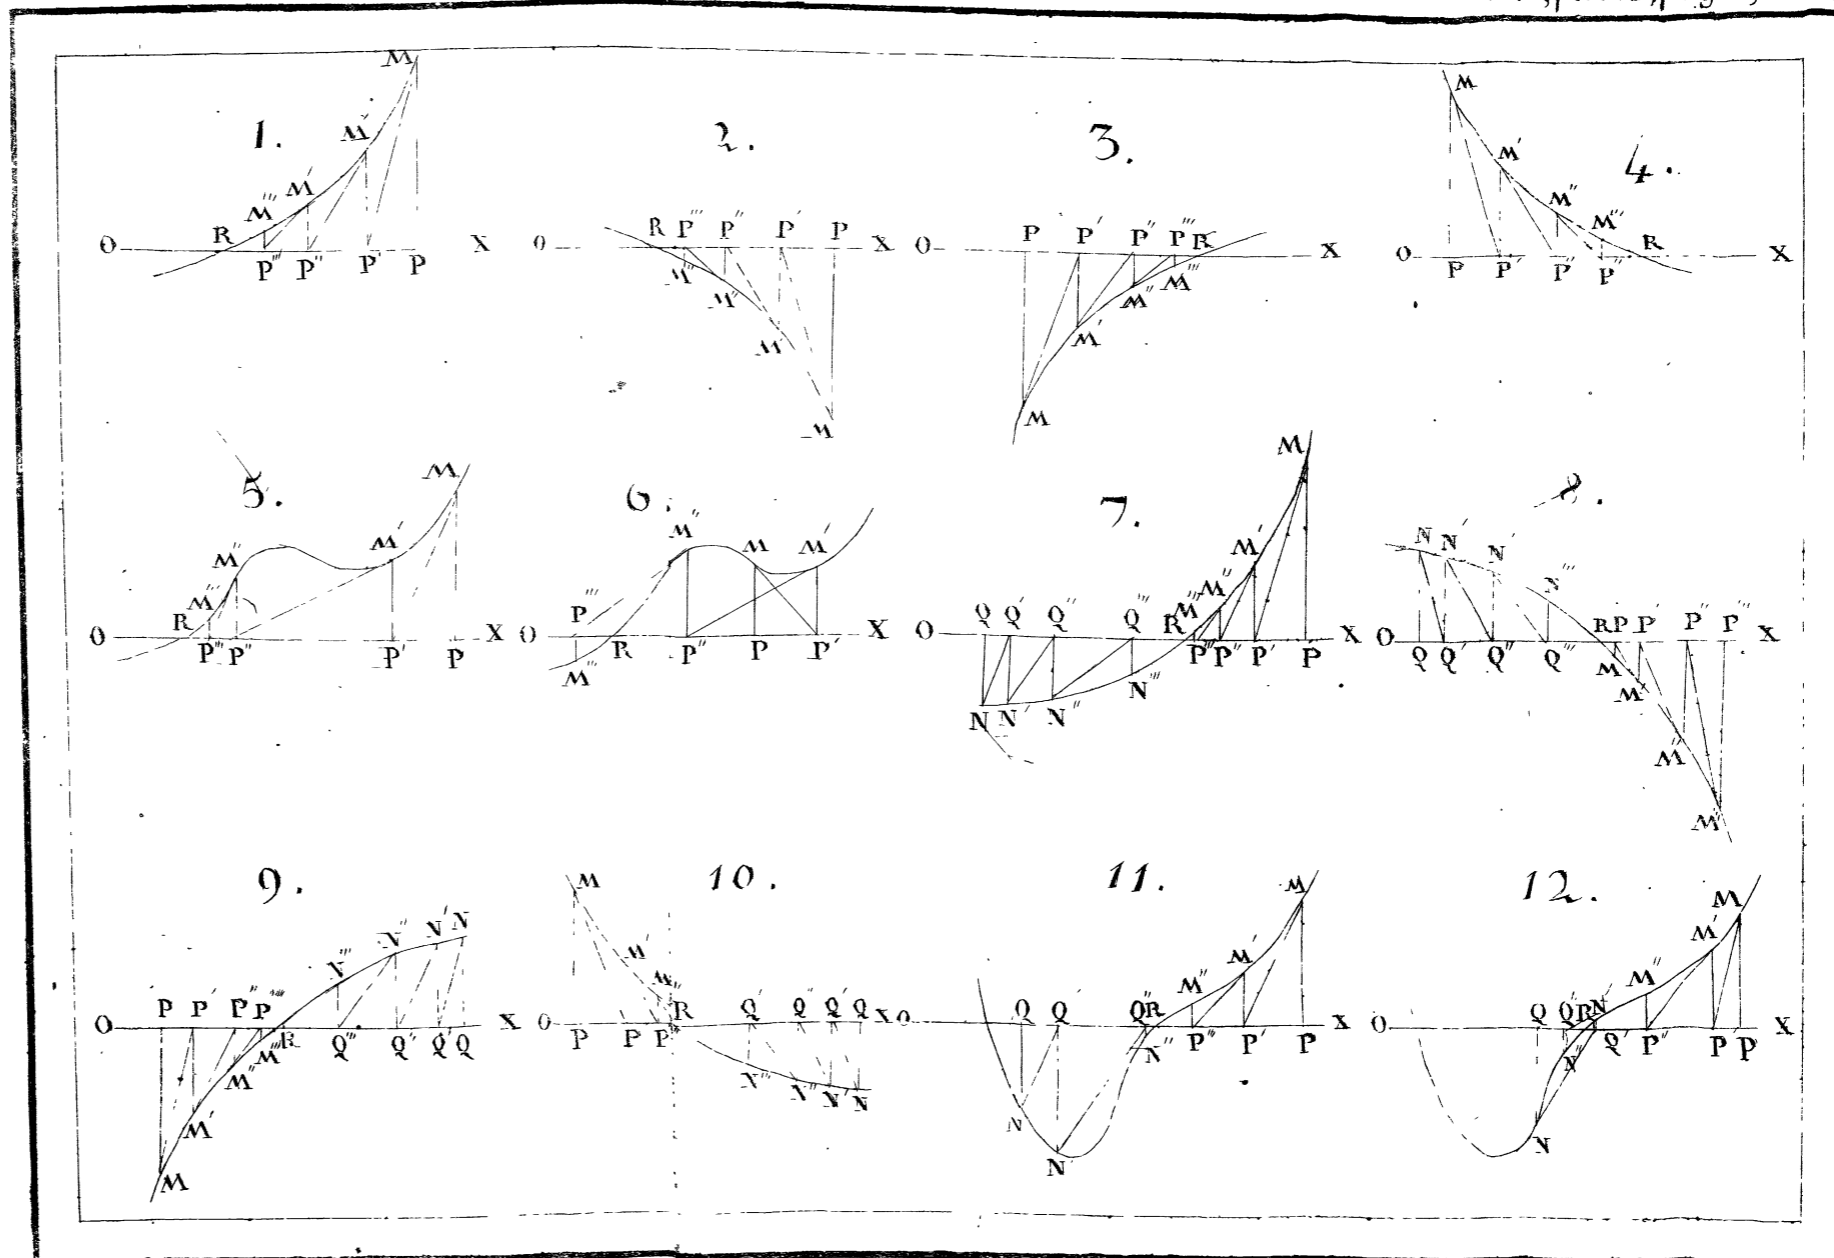 1.
M
M'
M''
M'''
O R P''' P'' P' P X
2.
O R P''' P'' P' P X
M'''
M''
M'
M
3.
O P P' P'' P''' R X
M'''
M''
M'
M
4.
M
M'
M''
M'''
R
O P P' P'' P''' X
5.
M
M'
M''
M'''
R
O P''' P'' P' P X
6.
M'' M M'
P'''
O R P'' P P' X
M'''
7.
M
M'
M''
M'''
Q Q' Q'' Q''' R
O P''' P'' P' P X
N N' N'' N'''
8.
N N' N''
N'''
R P P' P'' P'''
O Q Q' Q'' Q''' X
M
M'
M''
M'''
9.
N''' N'' N' N
P P' P'' P'''
O R Q''' Q'' Q' Q X
M'''
M''
M'
M
10.
M
M'
M''
R Q' Q'' Q' Q
O P P' P'' X
N''' N'' N' N
11.
M
M'
M''
Q Q' Q'' R
O P'' P' P X
N N' N''
12.
M
M'
M''
Q Q'' R N'
O Q' P'' P' P X
N''
N